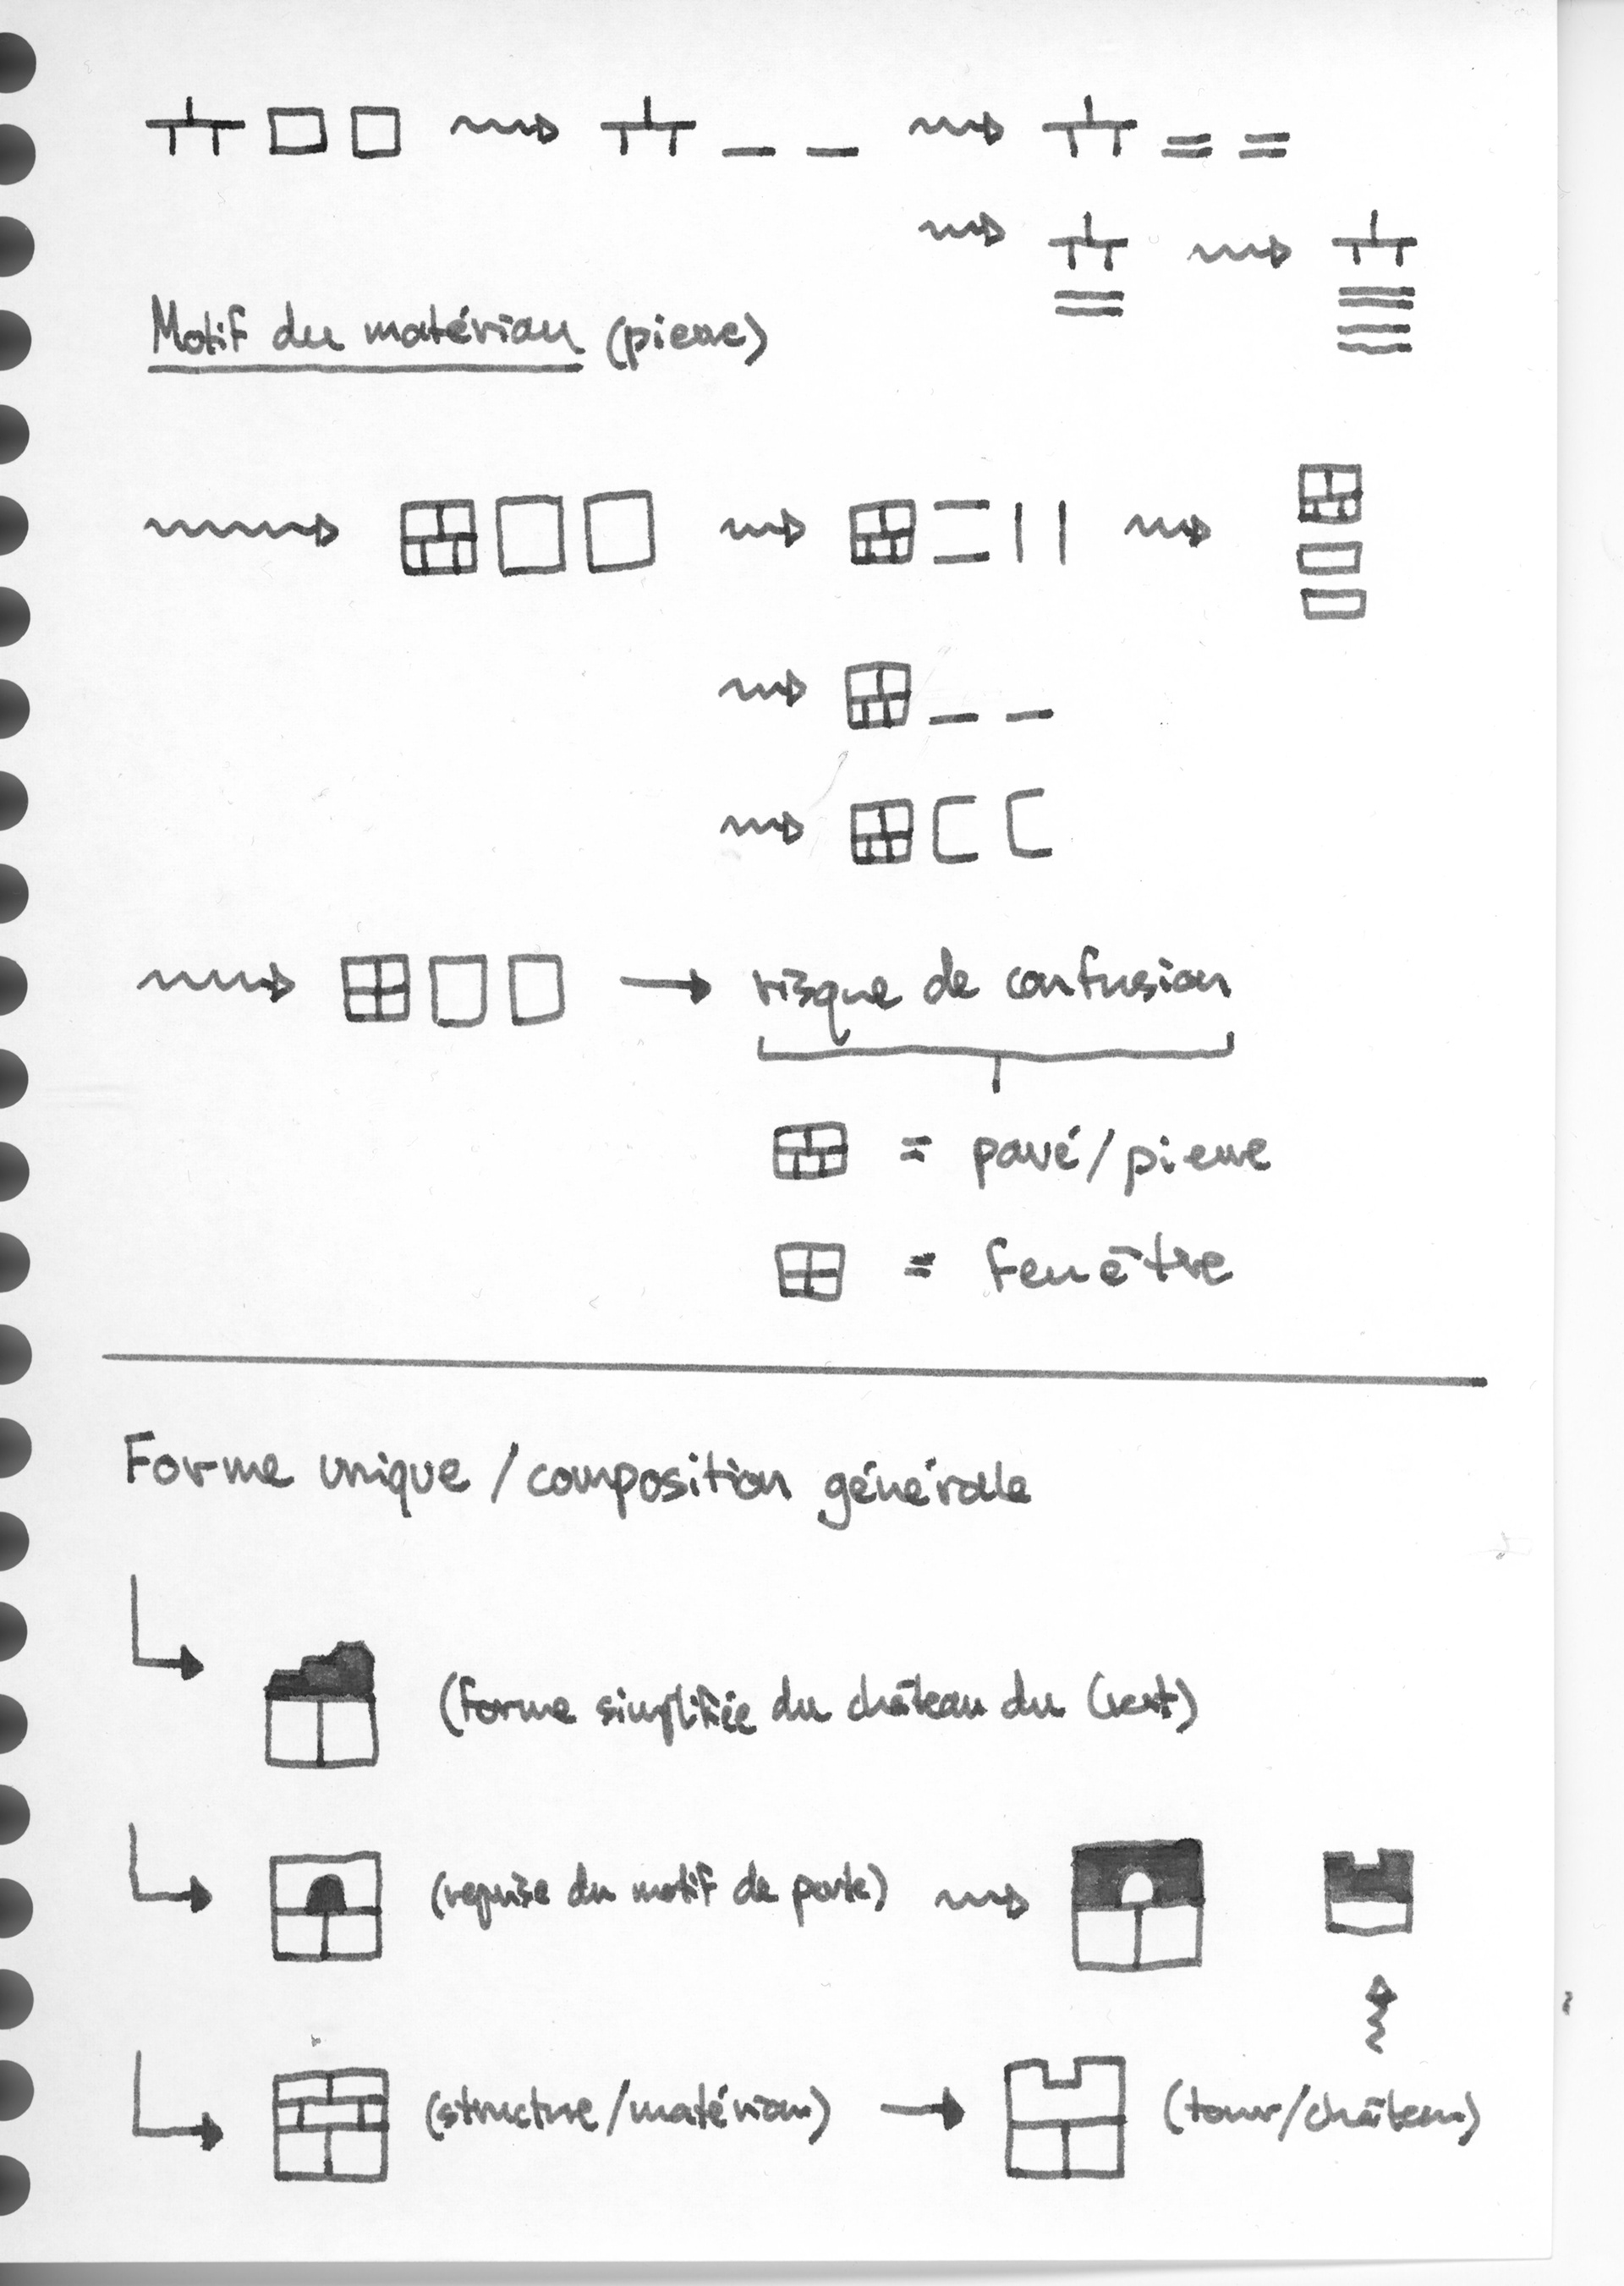 Motif du matériau (pierre)
risque de confusion
= pavé/pierre
= fenêtre
Forme unique / composition générale
(forme simplifiée du château du Crest)
(reprise du motif de porte)
(structure/matériau)
(tour/château)